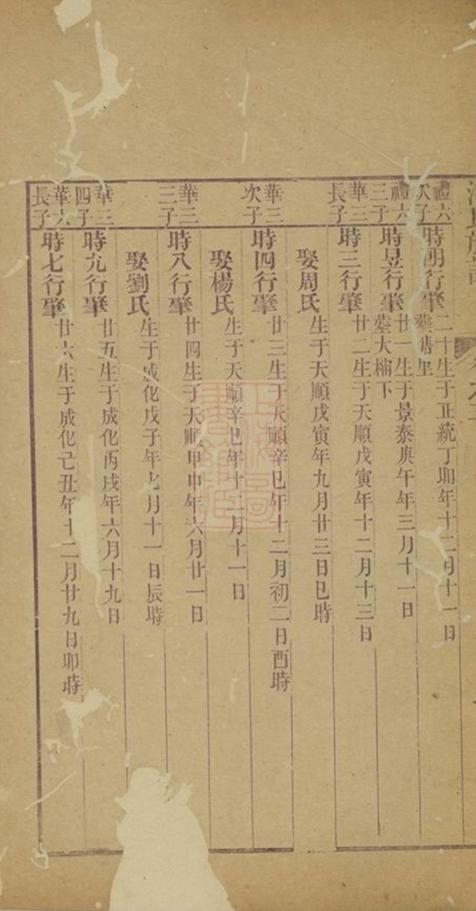 禮六次子 時朗行肇二十生于正統丁卯年十二月十一日
墓塘里
禮六三子 時昱行肇廿一生于景泰庚午年三月十一日
墓大楠下
華三長子 時三行肇廿二生于天順戊寅年十二月十三日
娶周氏 生于天順戊寅年九月廿三日巳時
華三次子 時四行肇廿三生于天順辛巳年十二月初二日酉時
娶楊氏 生于天順辛巳年十二月十一日
華三三子 時八行肇廿四生于天順甲申年六月廿一日
娶劉氏 生于成化戊子年七月十一日辰時
華三四子 時九行肇廿五生于成化丙戌年六月十九日
華六長子 時七行肇廿六生于成化己丑年十二月廿九日卯時